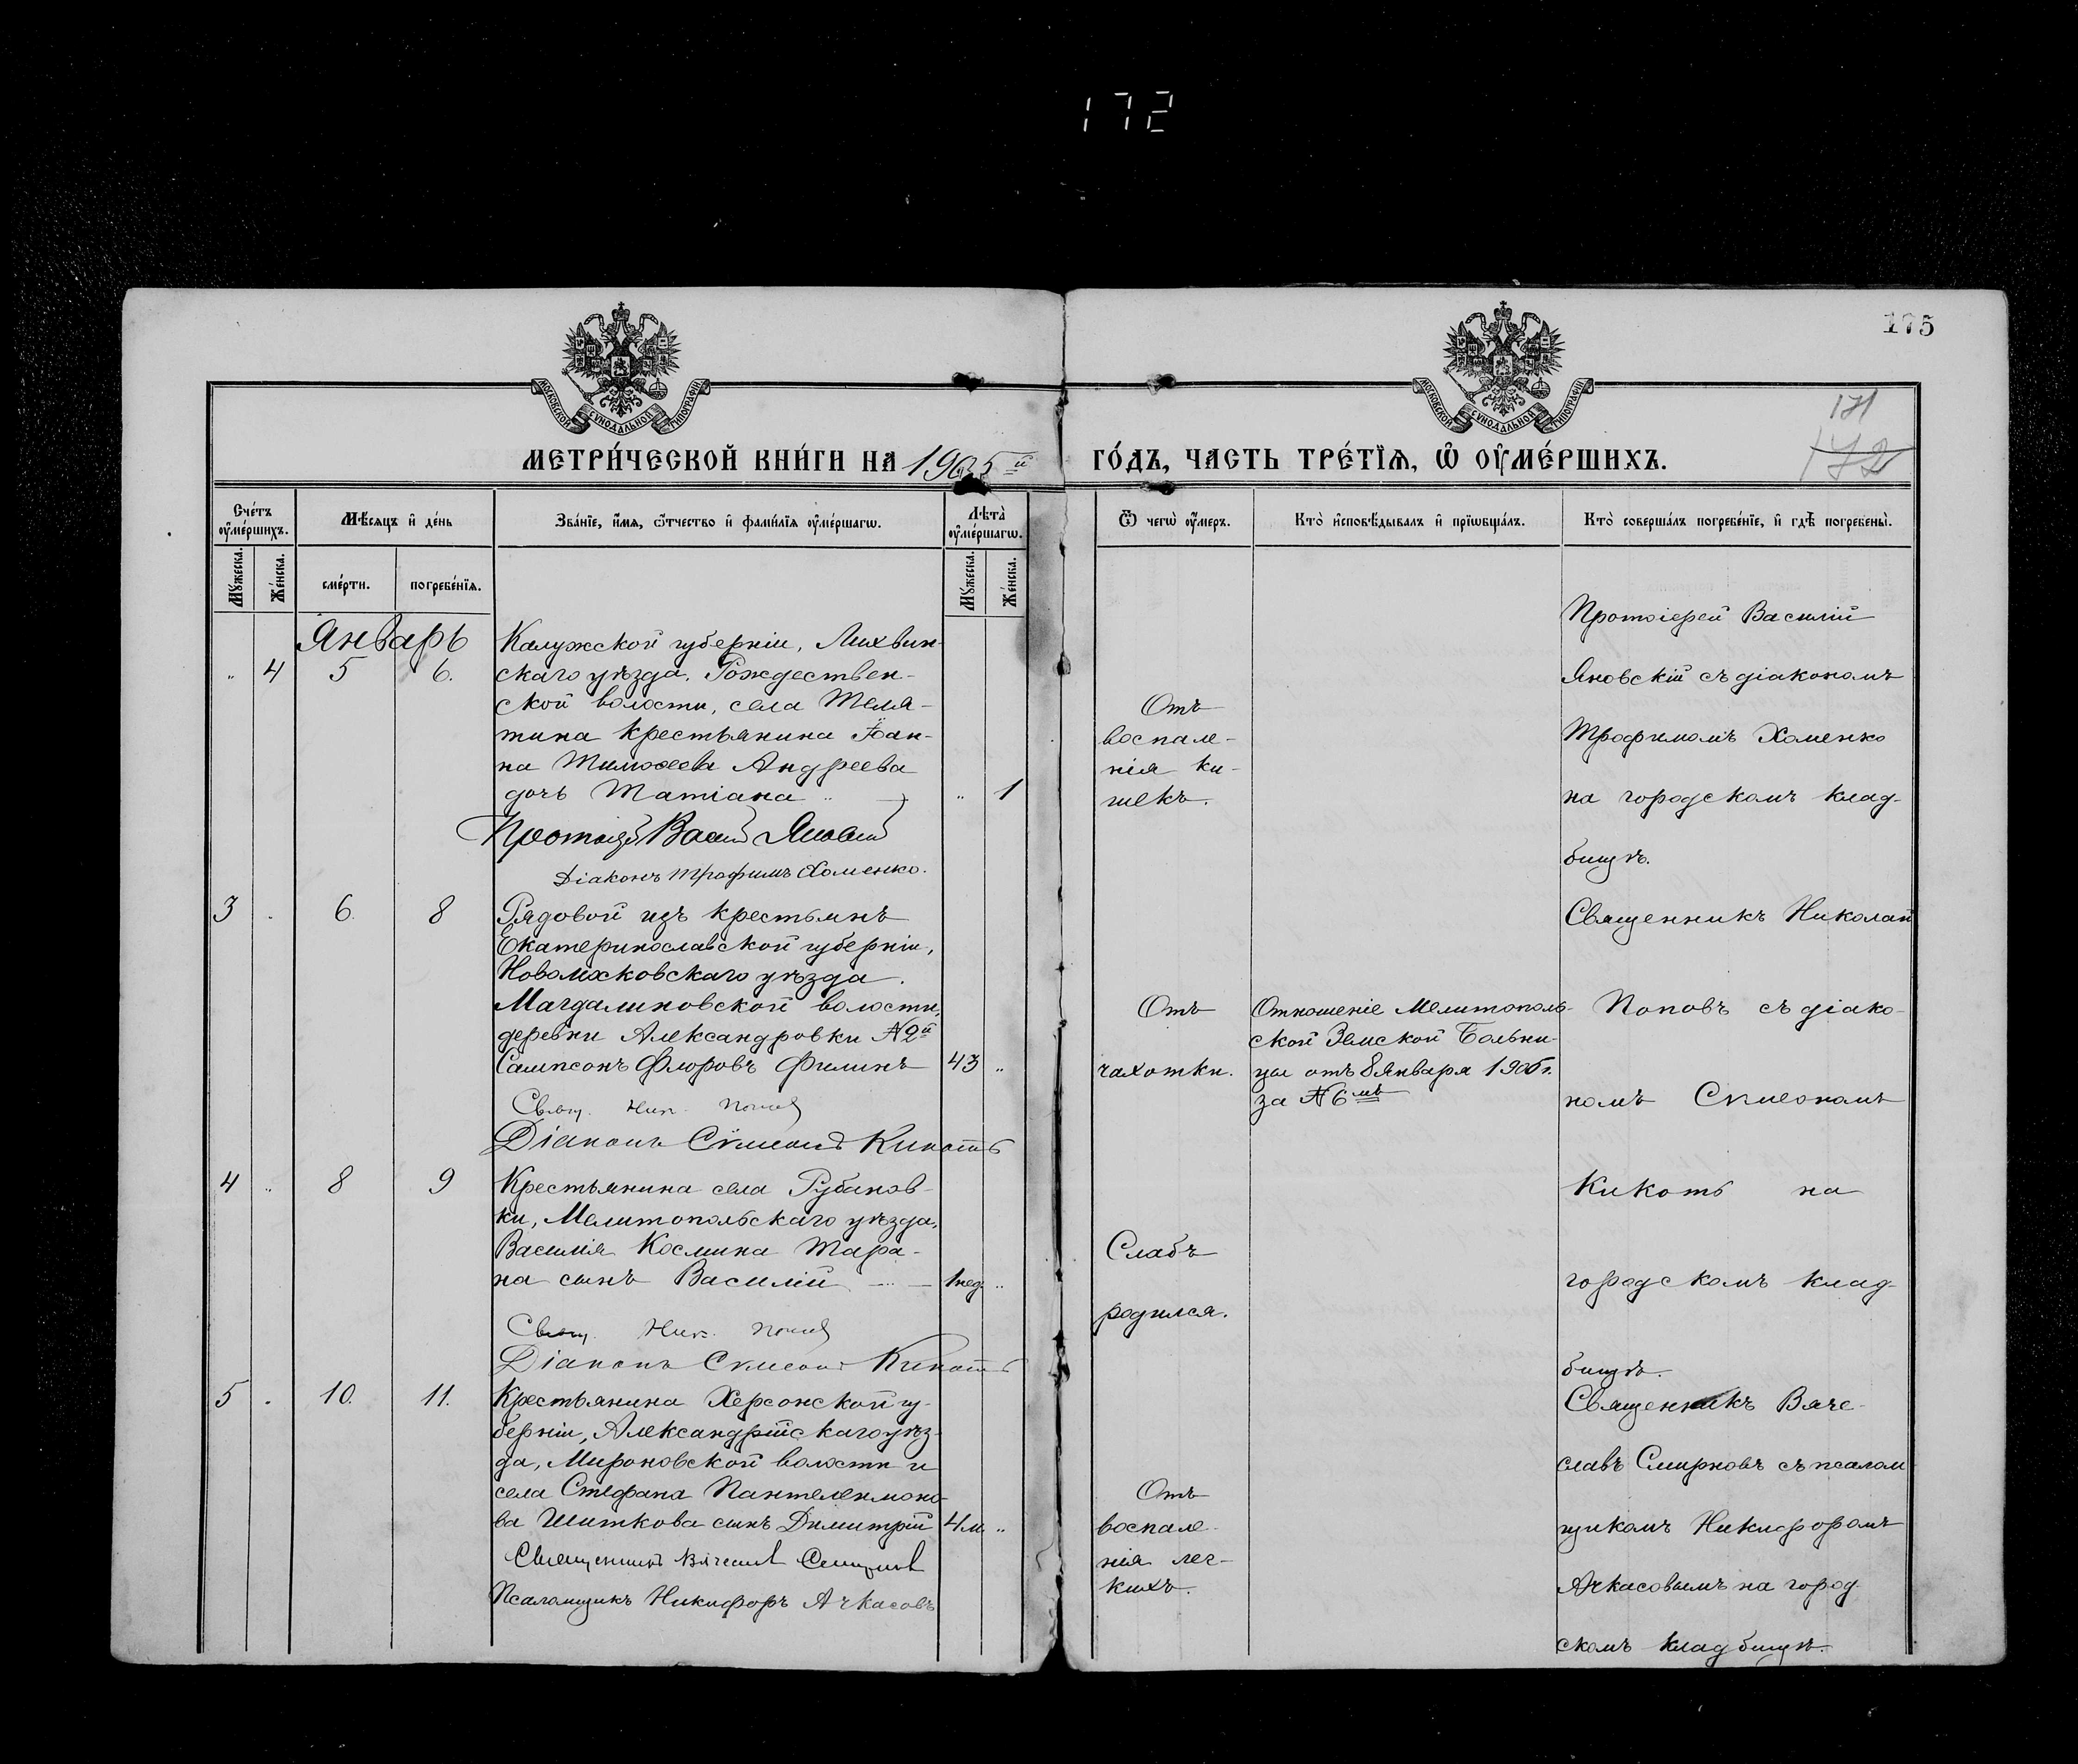 172
175
171
172
МОСКОВСКОЙ СѴНОДАЛЬНОЙ ТИПОГРАФІИ
МОСКОВСКОЙ СѴНОДАЛЬНОЙ ТИПОГРАФІИ
МЕТРИ́ЧЕСКОЙ КНИ́ГИ НА 1905й ГО́ДЪ, ЧАСТЬ ТРЕ́ТІѦ, Ѽ ОУ҆МЕ́РШИХЪ.
Сче́тъ оу҆ме́ршихъ.
Мѣ́сѧцъ и҆ де́нь
Зва́нїе, и҆́мѧ, ѻ҆́тчество и҆ фами́лїѧ оу҆ме́ршагѡ.
Лѣта̀ оу҆ме́ршагѡ.
Ѿ чегѡ̀ оу҆́меръ.
Кто̀ и҆сповѣ́дывалъ и҆ прїѡбща́лъ.
Кто̀ соверша́лъ погребе́нїе, и҆ гдѣ̀ погребены̀.
Мꙋ́жеска. Же́нска. сме́рти. погребе́нїѧ. Мꙋ́жеска. Же́нска.
Январь
„ 4 5 6.
Калужской губерніи, Лихвин-
скаго уѣзда, Рождествен-
ской волости, села Теля-
тина крестьянина
на Тимоѳеева Андреева
дочь Татіана „ 1
Протоіерей Василій Яновскій
Діаконъ Трофимъ Хоменко.
Отъ
воспале-
нія ки-
шекъ.
Протоіерей Василій
Яновскій съ діакономъ
Трофимомъ Хоменко
на городскомъ клад-
бищѣ.
3 . 6. 8
Рядовой изъ крестьянъ
Екатеринославской губерніи,
Новомосковскаго уѣзда.
Магдалиновской волости,
деревни Александровки №2й
Сампсонъ Флоровъ Филинъ 43 „
Свящ. Ник. Поповъ
Діаконъ Сѵмеонъ Кикоть
Отъ
чахотки.
Отношеніе Мелитополь-
ской Земской Больни-
цы отъ 8 Января 1905 г.
за №6мъ
Священникъ Николай
Поповъ съ діако-
номъ Сѵмеономъ
4 „ 8 9
Крестьянина села Рубанов-
ки, Мелитопольскаго уѣзда,
Василія Космина Тара-
на сынъ Василій 1нед. „
Свящ. Ник. Поповъ
Діаконъ Сѵмеонъ Кикоть
Слабъ
родился.
Кикоть на
городскомъ клад-
бищѣ.
5 . 10. 11.
Крестьянина Херсонской гу-
берніи, Александрійскаго уѣз-
да, Мироновской волости и
села Стефана Пантелеимоно-
ва Шиткова сынъ Димитрій 4м. „
Священникъ Вячеславъ Смирновъ
Псаломщикъ Никифоръ Ачкасовъ
Отъ
воспале-
нія лег-
кихъ.
Священникъ Вяче-
славъ Смирновъ съ псалом
щикомъ Никифоромъ
Ачкасовымъ на город-
скомъ кладбищѣ.